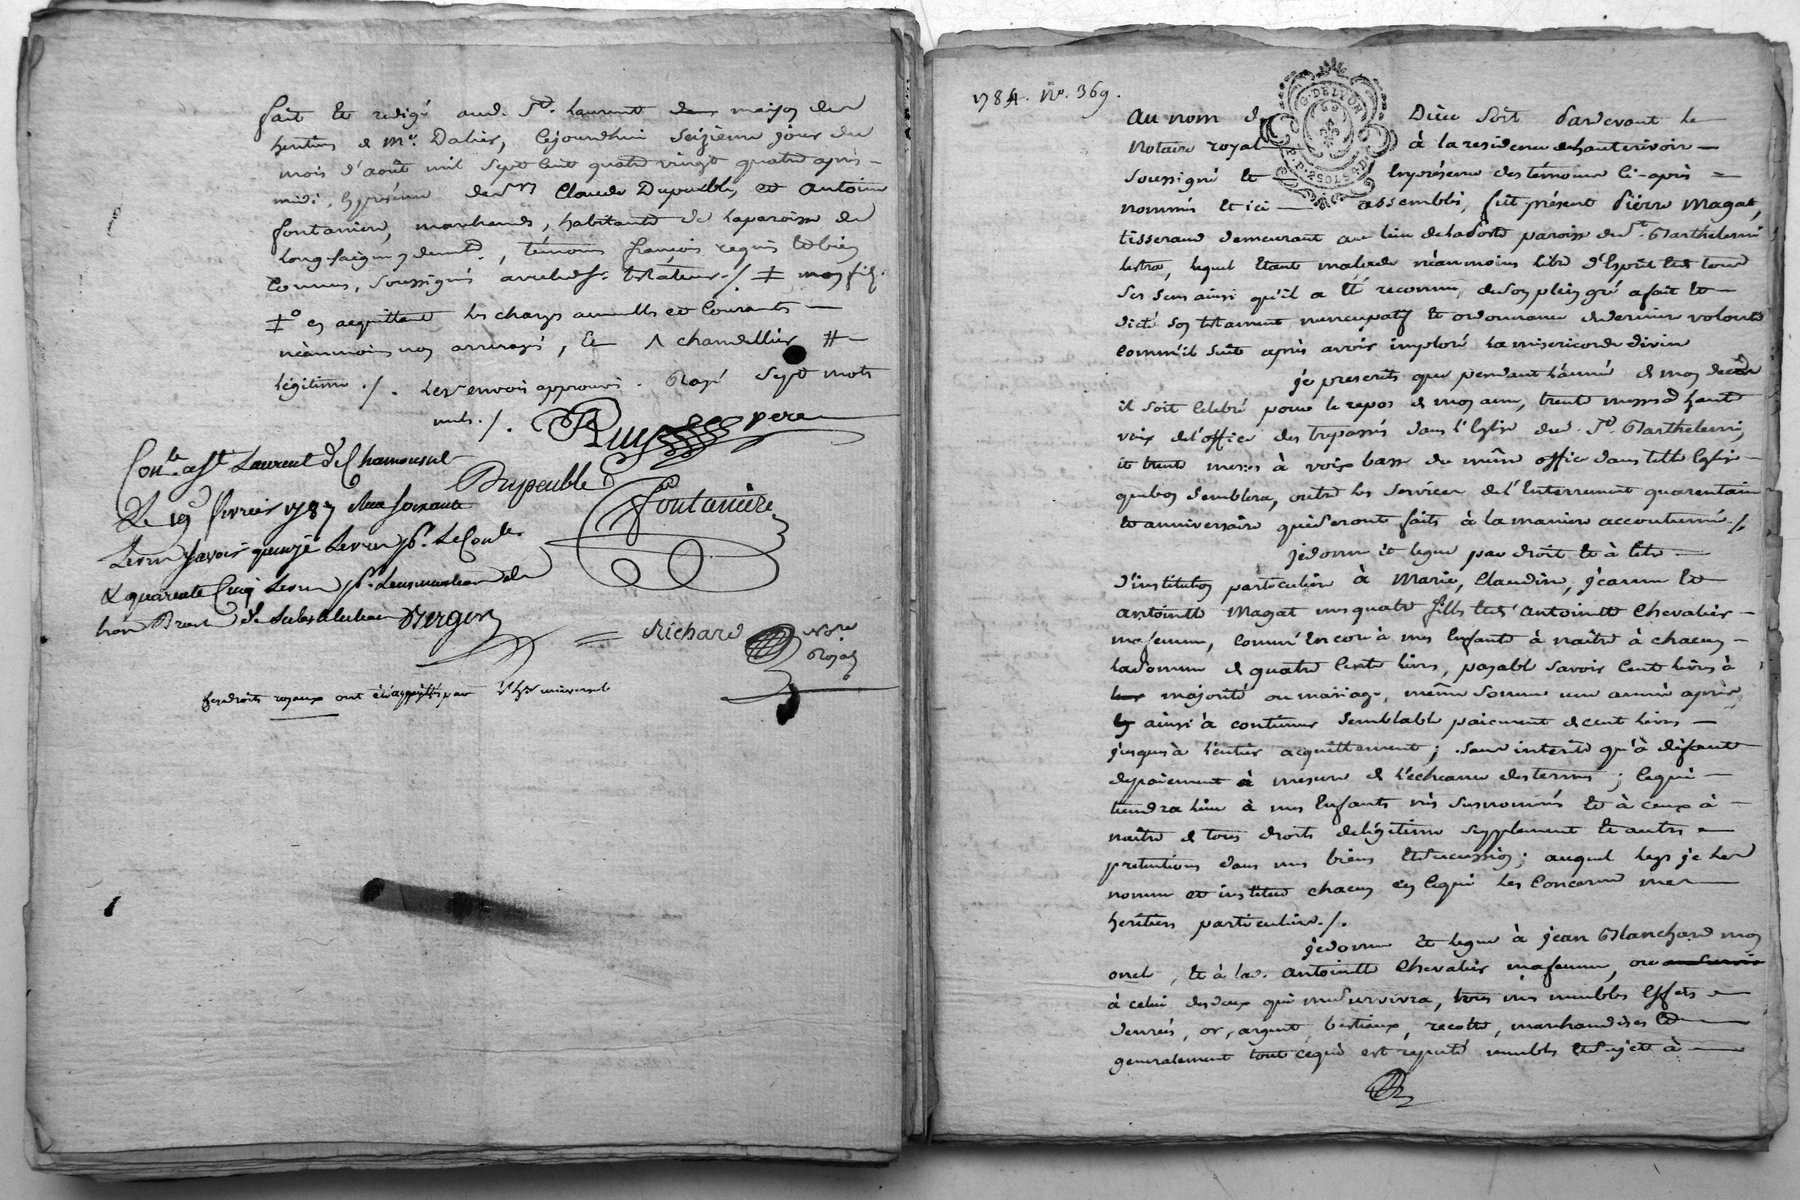 fait et redigé aud. St. Laurent dans maison des
heritiers de Mr. Dalier, cejourdhui seizieme jour du
mois d'août mil sept cent quatre vingt quatre après
midi, en présence de Srs Claude Dupeuble, et antoine
fontaniere, marchands, habitants de la paroisse de
Long-saigne y demts., témoins françois requis et bien
connus, soussignés avec led. Sr. testateur ./. ‡ mon fils
‡° en acquittant les charges annuelles et courantes
néanmoins non arreragés, Et Λ chandellier #
légitime ./. Les renvois approuvés. Rayé sept mots
nuls ./.
pere
Dupeuble
Fontaniere
Conlé à St Laurent de Chamousset
Le 19 fevrier 1787 Reçu soixante
livres savoir quinze livres pr. le Conle
& quarente cinq livres pr.
Verger
Richard Nore
Royal
les droits royaux ont été acquittés par l'her universel
1784. No. 369.
G. DE LYON
P.P. 2 SOLS 4 D.
Au nom de Dieu soit Pardevant le
Notaire royal à la residence de hauterivoire
soussigné et En présence des témoins ci-après
nommés et ici assemblés, fut présent Pierre Magat,
tisserand demeurant au lieu de la porte paroisse de St. Barthelemi
lestra, lequel étant malade néanmoins libre d'Esprit et de tous
ses sens ainsi qu'il a été reconnu, de son plein gré a fait et
dicté son testament nuncupatif et ordonnance de derniere volonté
comm'il suit après avoir imploré la misericorde divine
je prescrits que pendant l'année de mon decès
il soit celebré pour le repos de mon ame, trente messes à haute
voix de l'office des trepassés dans l'Eglise dud. St. Barthelemi,
et trente messes à voix basse du même office dans telle Eglise
que bon semblera, outre les services de l'enterrement quarentaine
et anniversaire qui seront faits à la maniere accoutumée ./.
je donne et legue par droit et à titre
d'institution particuliere à Marie, Claudine, jeanne et
antoinette Magat mes quatre filles et d'antoinette Chevalier
ma femme, comm'encore à mes Enfants à naître à chacun
la somme de quatre cents livres, payable savoir cent livres à
majorité ou mariage, même somme une année après,
Et ainsi à continuer semblable paiement de cent livres
jusques à l'entier acquittement; sans interets qu'à défaut
de paiement à mesure de l'écheance des termes; ce qui
tiendra lieu à mes Enfants nés susnommés et à ceux à
naître de tous droits de légitime supplement et autres
pretentions dans mes biens et succession; auquel legs je les
nomme et institue chacun en ce qui les concerne mes
heritiers particuliers ./.
je donne et legue à jean Blanchard mon
oncle, et à lad. antoinette Chevalier ma femme, ou
à celui des deux qui me survivra, tous mes meubles Effets
denrées, or, argent, bestiaux, recolte, marchandises et
generalement tout ce qui est reputé meubles et sujet à